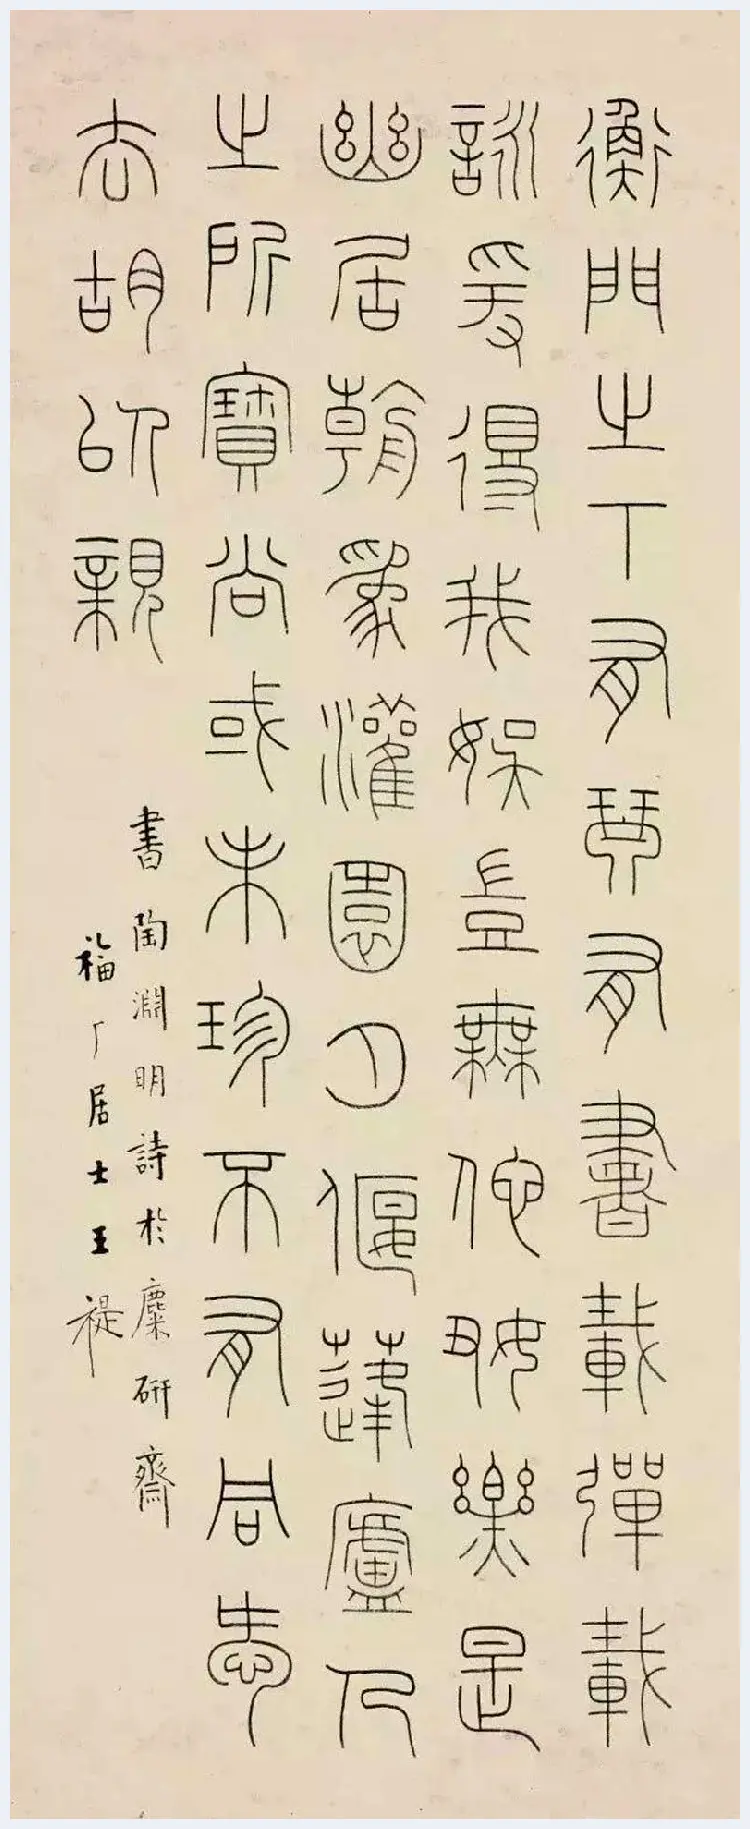 衡門之下有琴有書載彈載
詠爰得我娛豈無他好樂是
幽居朝為灌園夕偃蓬廬人
之所寶尚或未珍不有同愛
去胡以親
書陶淵明詩於麋研齋
福厂居士王禔